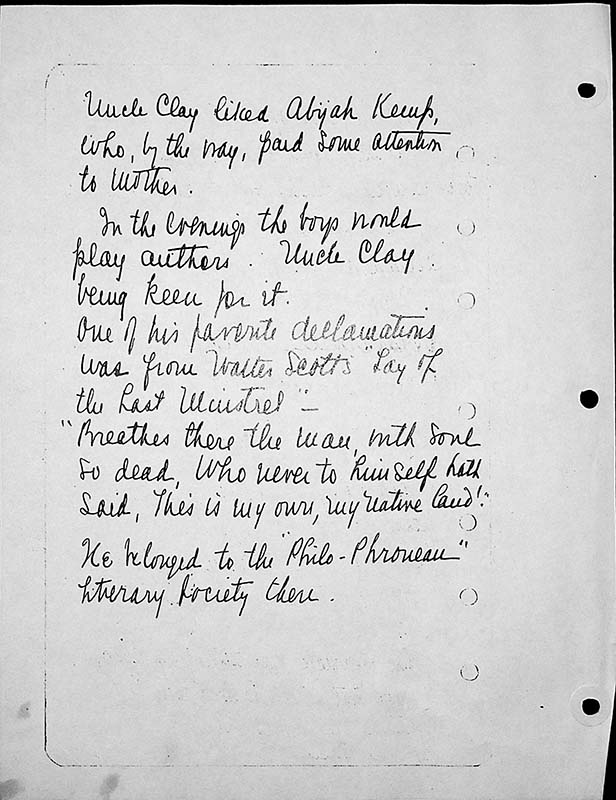 Uncle Clay liked Abijah Kemp,
who, by the way, paid some attention
to Mother.
In the evenings the boys would
play authors. Uncle Clay
being keen for it.
One of his favorite declamations
was from Walter Scott's "Lay of
the Last Minstrel" –
"Breathes there the man, with soul
so dead, Who never to himself hath
said, This is my own, my native land!"
He belonged to the "Philo-Phronean"
Literary Society there.